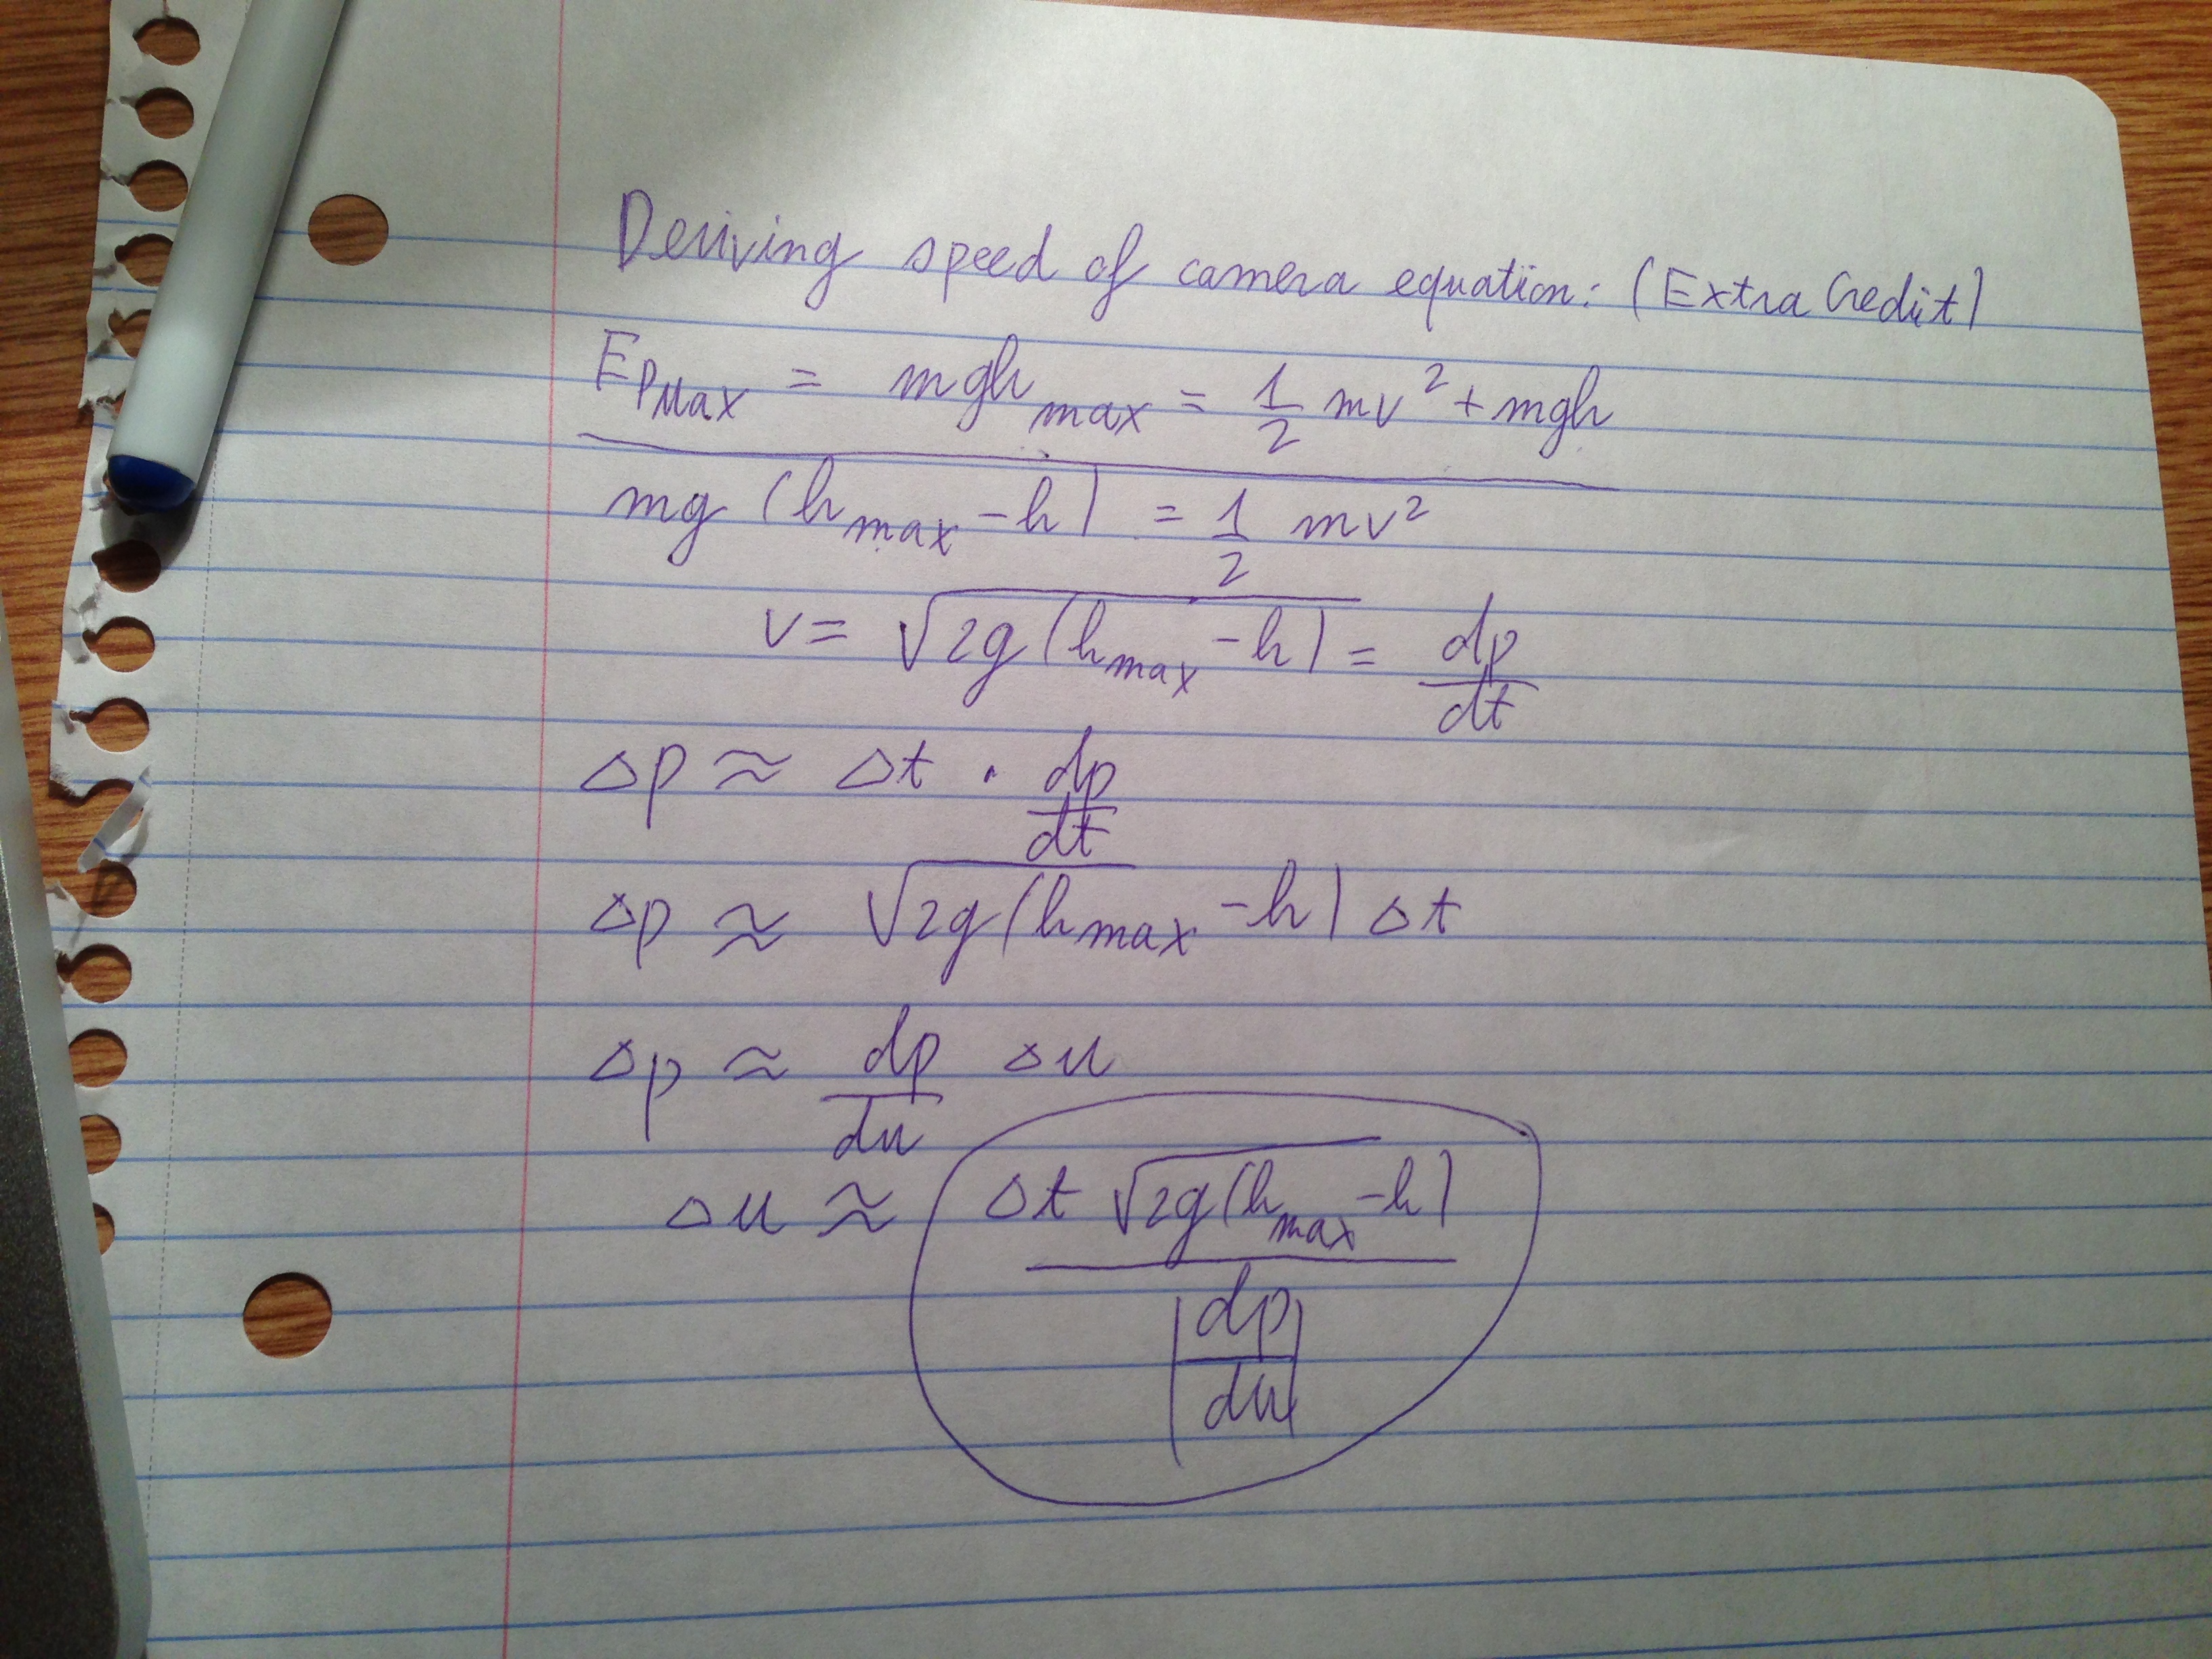 Deriving speed of camera equation: (Extra Credit)
E_PMax = mgh_max = 1/2 mv² + mgh
mg (h_max - h) = 1/2 mv²
v = √2g(h_max - h) = dp/dt
Δp ≈ Δt · dp/dt
Δp ≈ √2g(h_max - h) Δt
Δp ≈ dp/du Δu
Δu ≈ Δt √2g(h_max - h) / |dp/du|